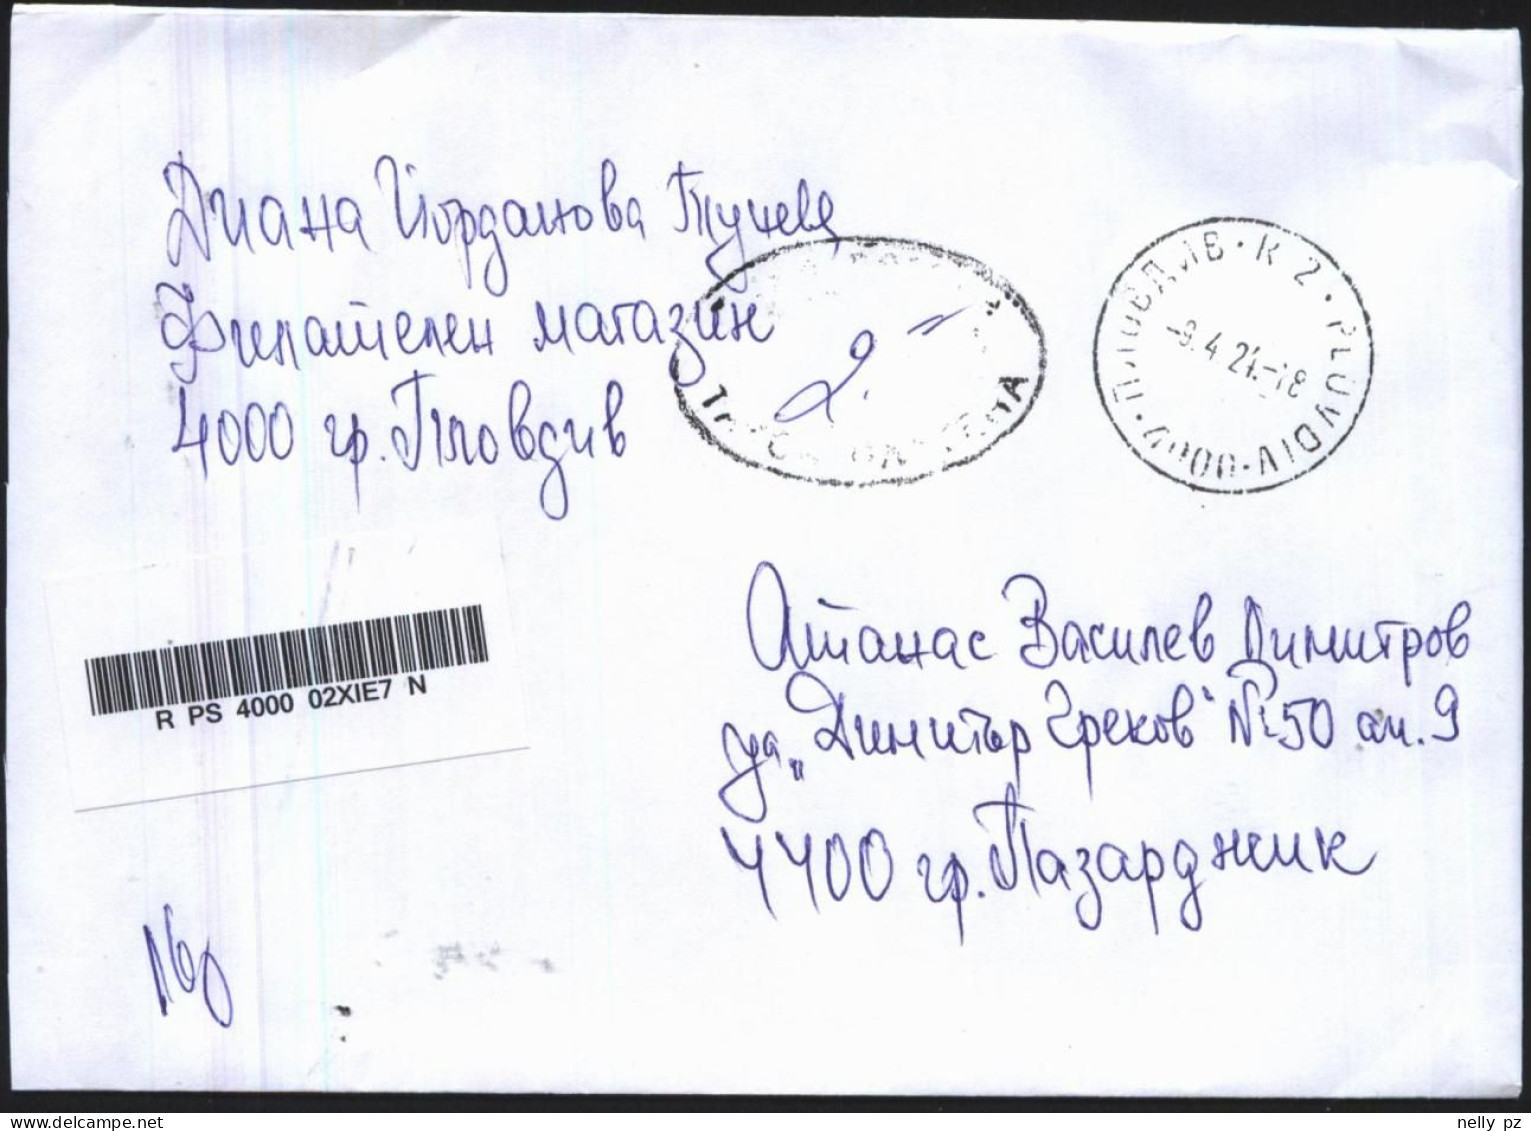 Диана Йорданова Тучева
Филателен магазин
4000 гр. Пловдив
2.
ПЛОВДИВ · К 2 · PLOVDIV · 4000
-9.4.24.-18
R PS 4000 02XIE7 N
Атанас Василев Димитров
ул. „Димитър Греков“ № 50 ап. 9
4400 гр. Пазарджик
160
nelly pz